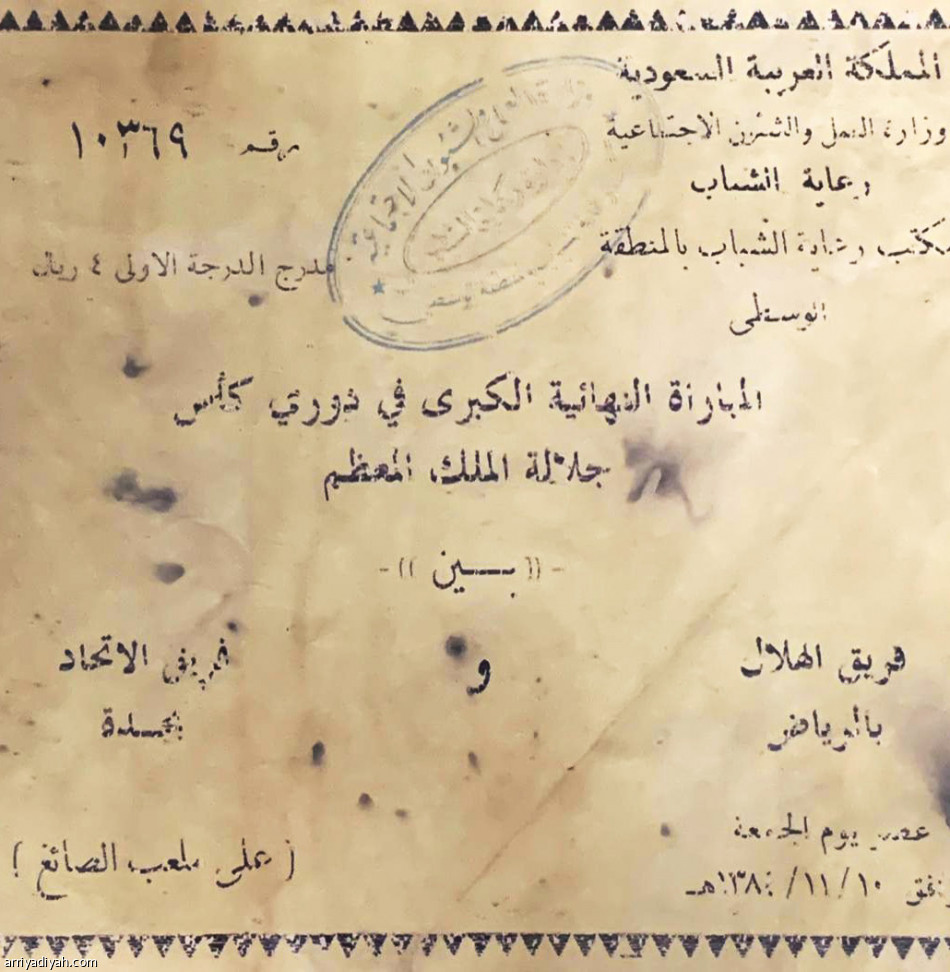 المملكة العربية السعودية
وزارة العمل والشئون الاجتماعية
رعاية الشباب
مكتب رعاية الشباب بالمنطقة
الوسطى
رقم ١٠٣٦٩
مدرج الدرجة الاولى ٤ ريال
المباراة النهائية الكبرى في دوري كأس
جلالة الملك المعظم
-(( بـــين ))-
فريق الهلال و فريق الاتحاد
بالرياض بجـــدة
عصر يوم الجمعة
١٣٨٤/١١/١٠هـ
( على ملعب الصائغ )
arriyadiyah.com